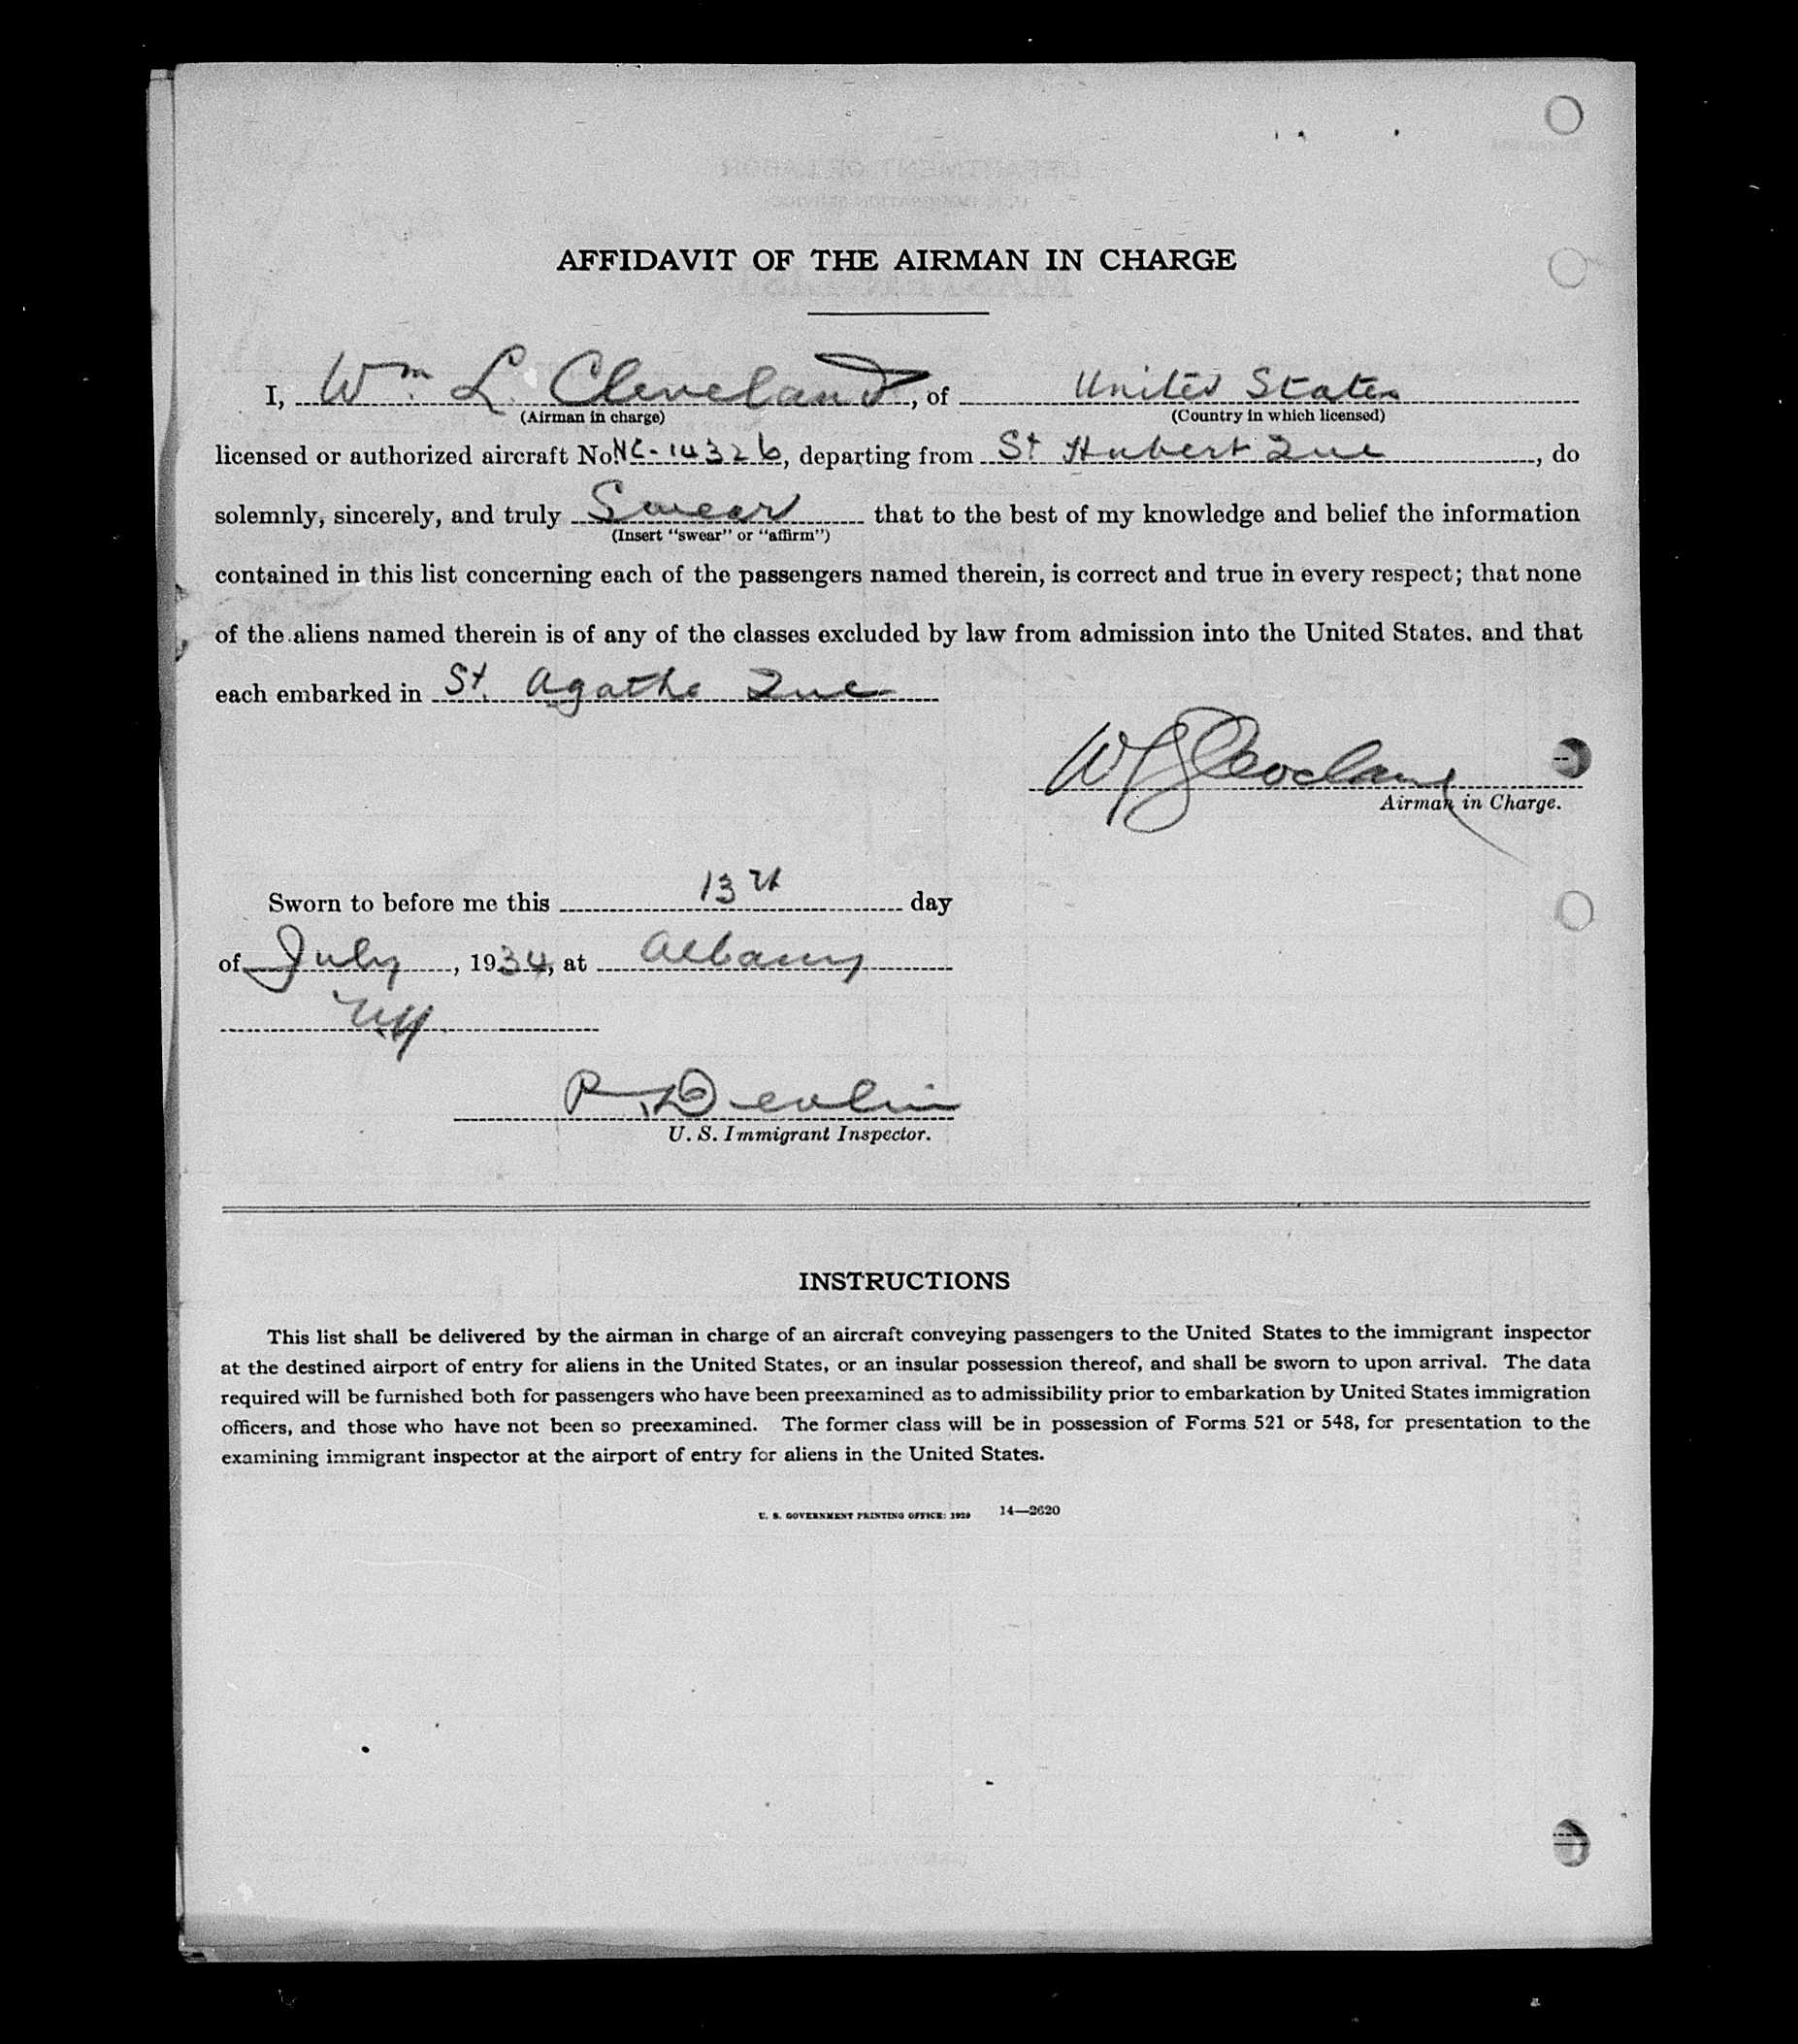 AFFIDAVIT OF THE AIRMAN IN CHARGE
I, Wm. L. Cleveland, of United States
(Airman in charge) (Country in which licensed)
licensed or authorized aircraft No. NC-14326, departing from St Hubert Que, do
solemnly, sincerely, and truly Swear that to the best of my knowledge and belief the information
(Insert "swear" or "affirm")
contained in this list concerning each of the passengers named therein, is correct and true in every respect; that none
of the aliens named therein is of any of the classes excluded by law from admission into the United States. and that
each embarked in St. Agathe Que
WLCleveland
Airman in Charge.
Sworn to before me this 13th day
of July, 1934, at Albany
NY
R. Devlin
U. S. Immigrant Inspector.
INSTRUCTIONS
This list shall be delivered by the airman in charge of an aircraft conveying passengers to the United States to the immigrant inspector
at the destined airport of entry for aliens in the United States, or an insular possession thereof, and shall be sworn to upon arrival. The data
required will be furnished both for passengers who have been preexamined as to admissibility prior to embarkation by United States immigration
officers, and those who have not been so preexamined. The former class will be in possession of Forms 521 or 548, for presentation to the
examining immigrant inspector at the airport of entry for aliens in the United States.
U. S. GOVERNMENT PRINTING OFFICE: 1929 14—2620